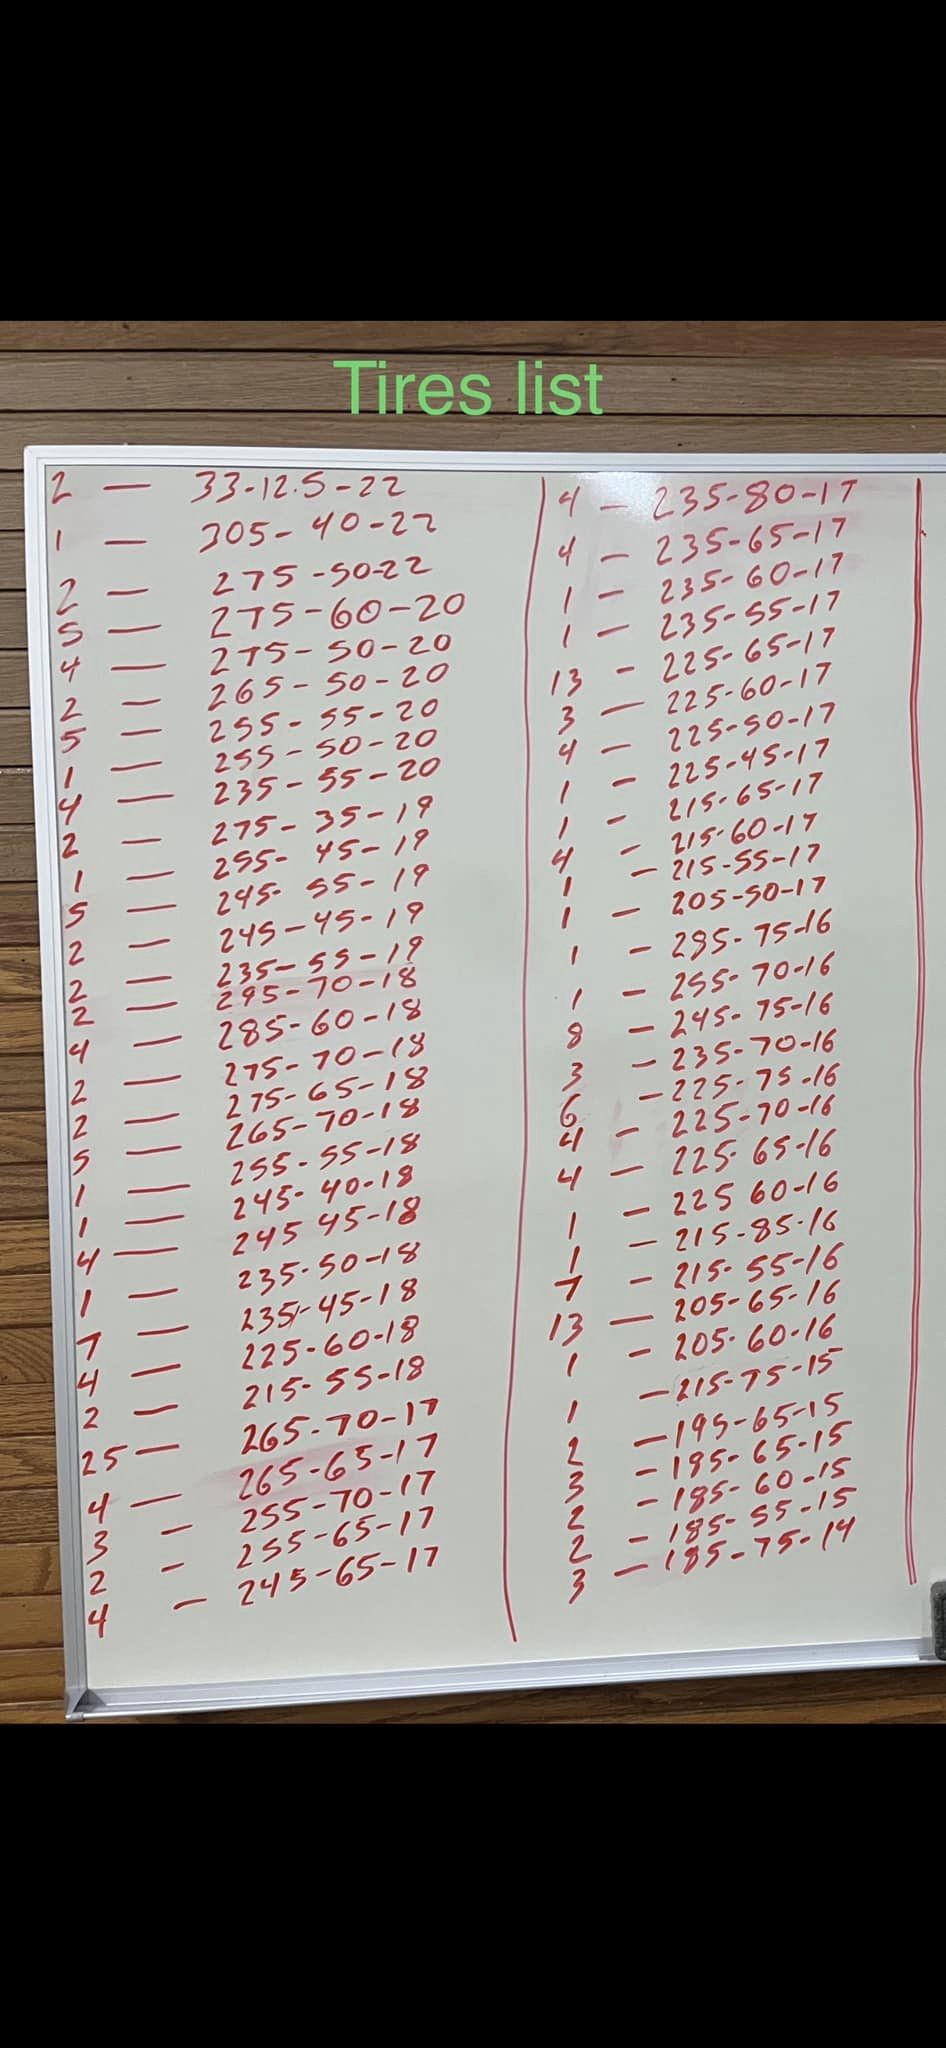 Tires list
2 — 33-12.5-22
1 — 305-40-22
2 — 275-50-22
5 — 275-60-20
4 — 275-50-20
2 — 265-50-20
5 — 255-55-20
1 — 255-50-20
4 — 235-55-20
2 — 275-35-19
1 — 255-45-19
5 — 245-55-19
2 — 245-45-19
2 — 235-55-19
2 — 295-70-18
4 — 285-60-18
2 — 275-70-18
2 — 275-65-18
5 — 265-70-18
1 — 255-55-18
1 — 245-40-18
4 — 245 45-18
1 — 235-50-18
7 — 235-45-18
4 — 225-60-18
2 — 215-55-18
25 — 265-70-17
4 — 265-65-17
3 - 255-70-17
2 - 255-65-17
4 - 245-65-17
4 - 235-80-17
4 - 235-65-17
1 - 235-60-17
1 - 235-55-17
13 - 225-65-17
3 — 225-60-17
4 - 225-50-17
1 - 225-45-17
1 - 215-65-17
4 - 215-60-17
1 - 215-55-17
1 - 205-50-17
1 - 285-75-16
1 - 255-70-16
8 - 245-75-16
3 - 235-70-16
6 - 225-75-16
4 - 225-70-16
4 - 225-65-16
1 - 225 60-16
1 - 215-85-16
7 - 215-55-16
13 — 205-65-16
1 - 205-60-16
1 - 215-75-15
2 - 195-65-15
3 - 185-65-15
2 - 185-60-15
2 - 185-55-15
3 - 185-75-14